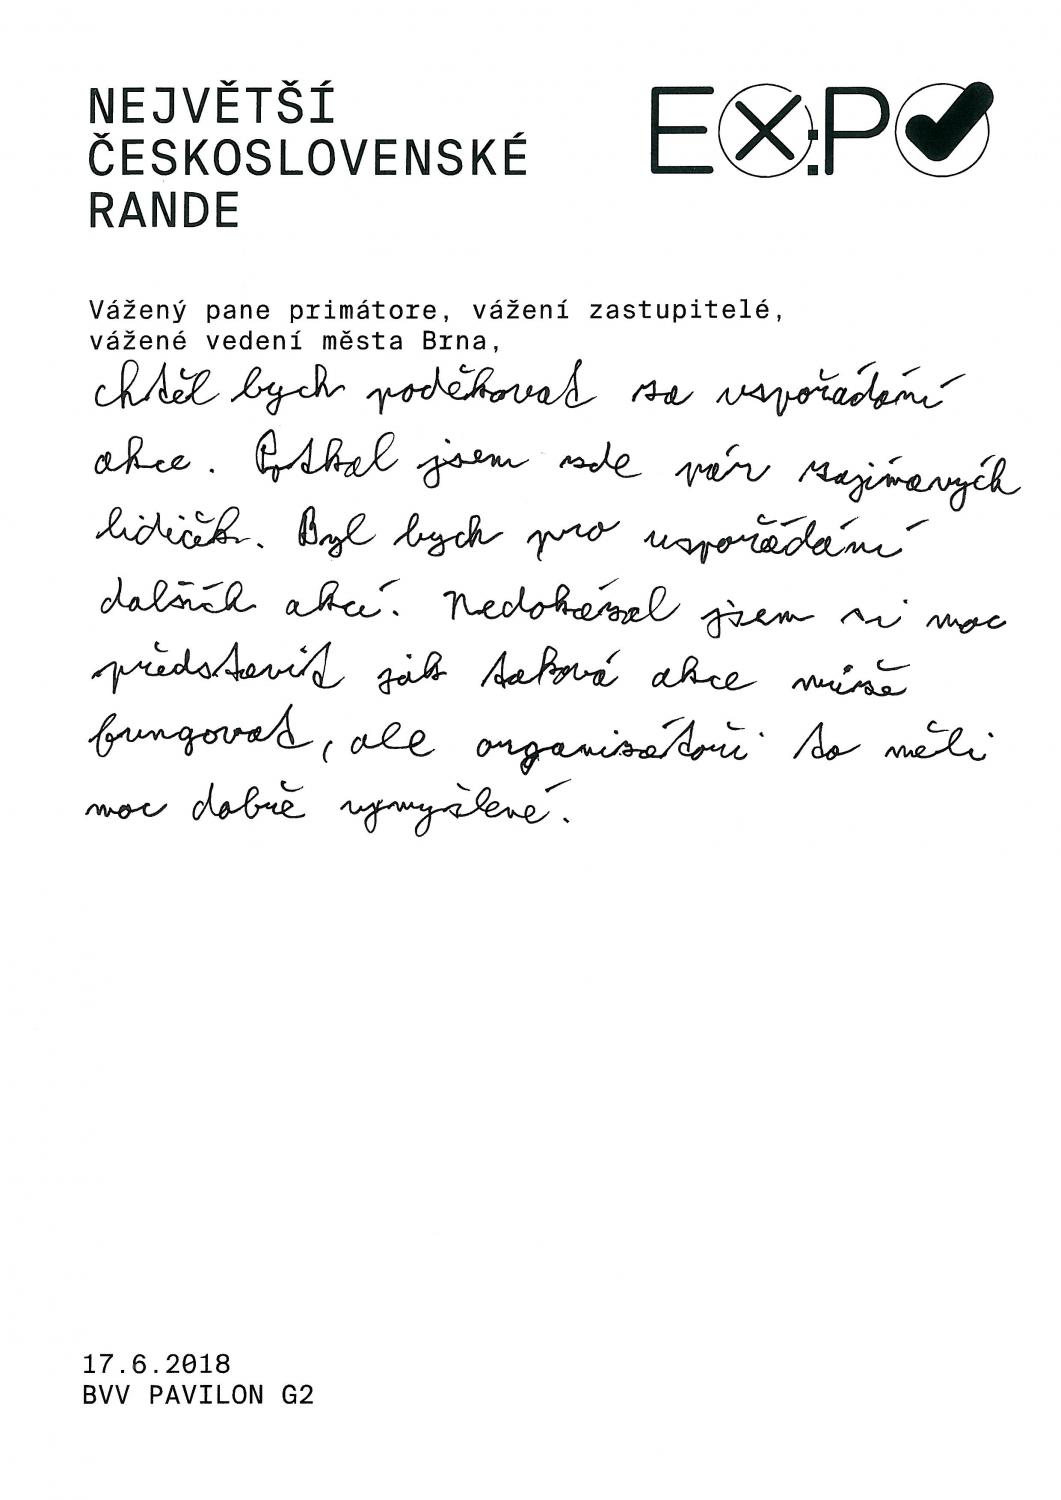 NEJVĚTŠÍ
ČESKOSLOVENSKÉ
RANDE
EX:PO
Vážený pane primátore, vážení zastupitelé,
vážené vedení města Brna,
chtěl bych poděkovat za uspořádání
akce. Potkal jsem zde pár zajímavých
lidiček. Byl bych pro uspořádání
dalších akcí. Nedokázal jsem si moc
představit jak taková akce může
fungovat, ale organizátoři to měli
moc dobře vymyšlené.
17.6.2018
BVV PAVILON G2